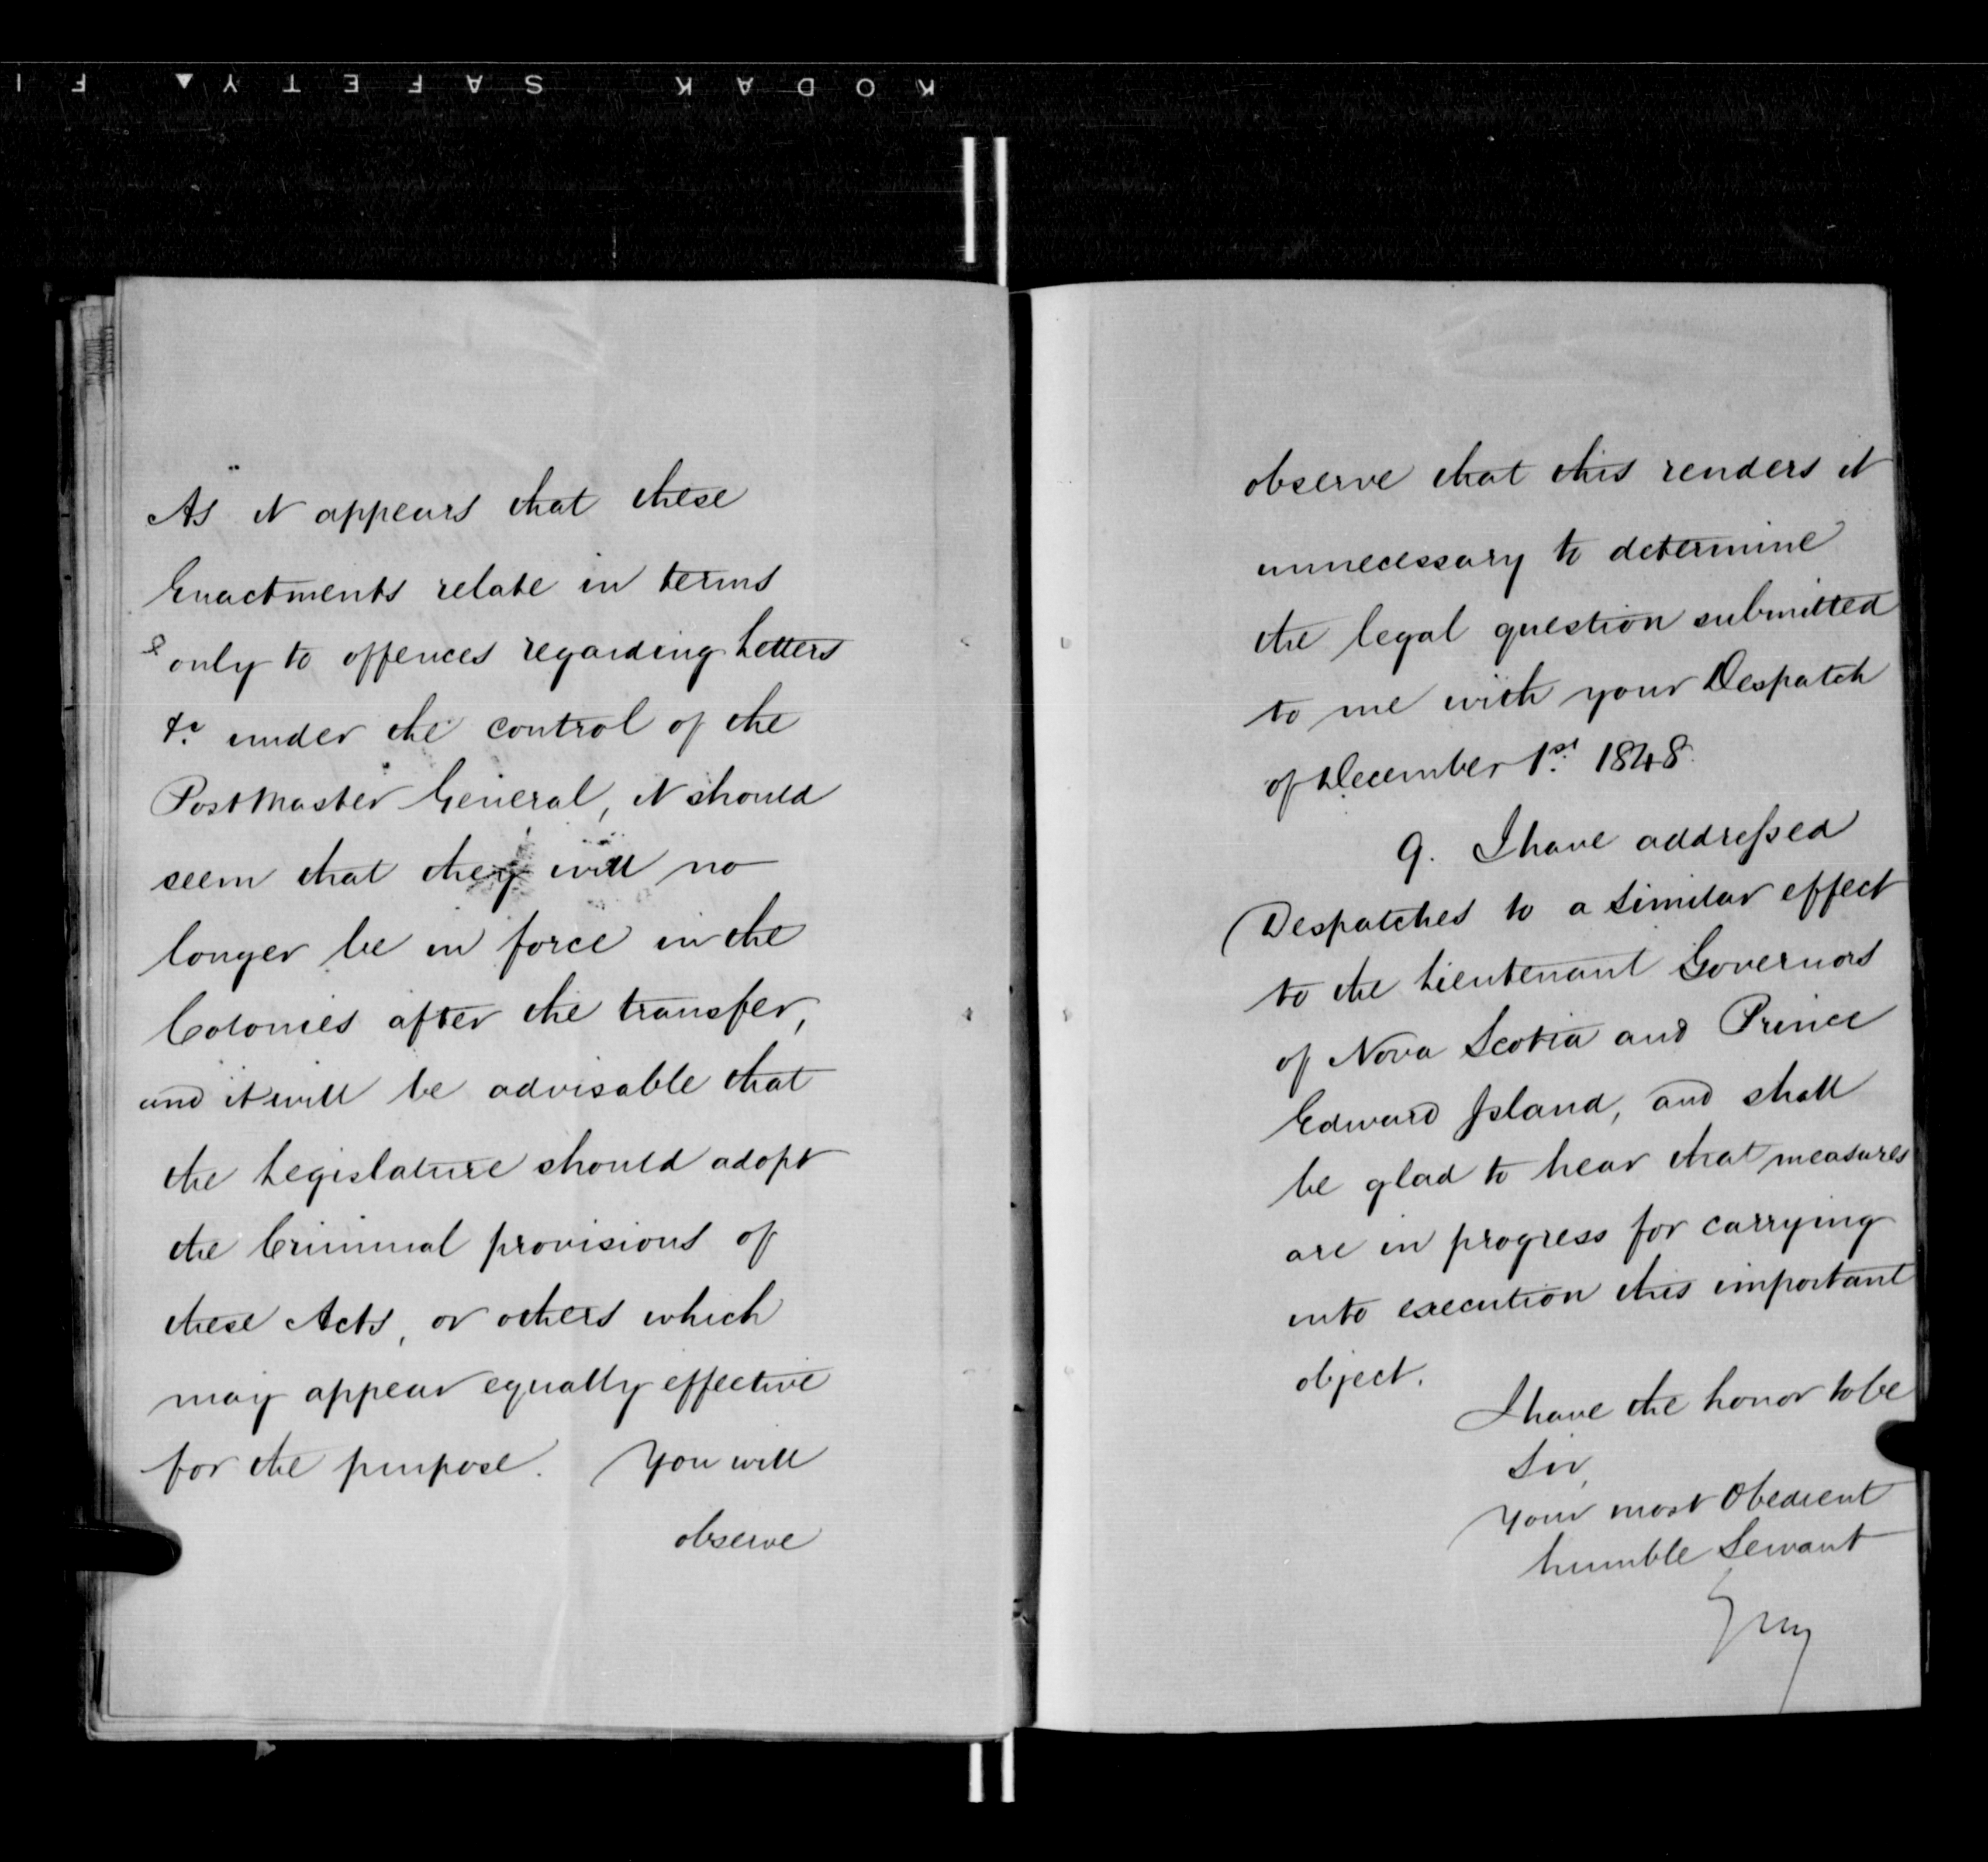 KODAK SAFETY▲ FI
As it appears that these
Enactments relate in terms
& only to offences regarding Letters
&c. under the control of the
PostMaster General, it should
seem that they will no
longer be in force in the
Colonies after the transfer,
and it will be advisable that
the Legislature should adopt
the Criminal provisions of
these Acts, or others which
may appear equally effective
for the purpose. You will
observe
observe that this renders it
unnecessary to determine
the legal question submitted
to me with your Despatch
of December 1st. 1848.
9. I have addressed
Despatches to a similar effect
to the Lieutenant Governors
of Nova Scotia and Prince
Edward Island, and shall
be glad to hear that measures
are in progress for carrying
into execution this important
object.
I have the honor to be
Sir,
Your most Obedient
humble Servant
Grey